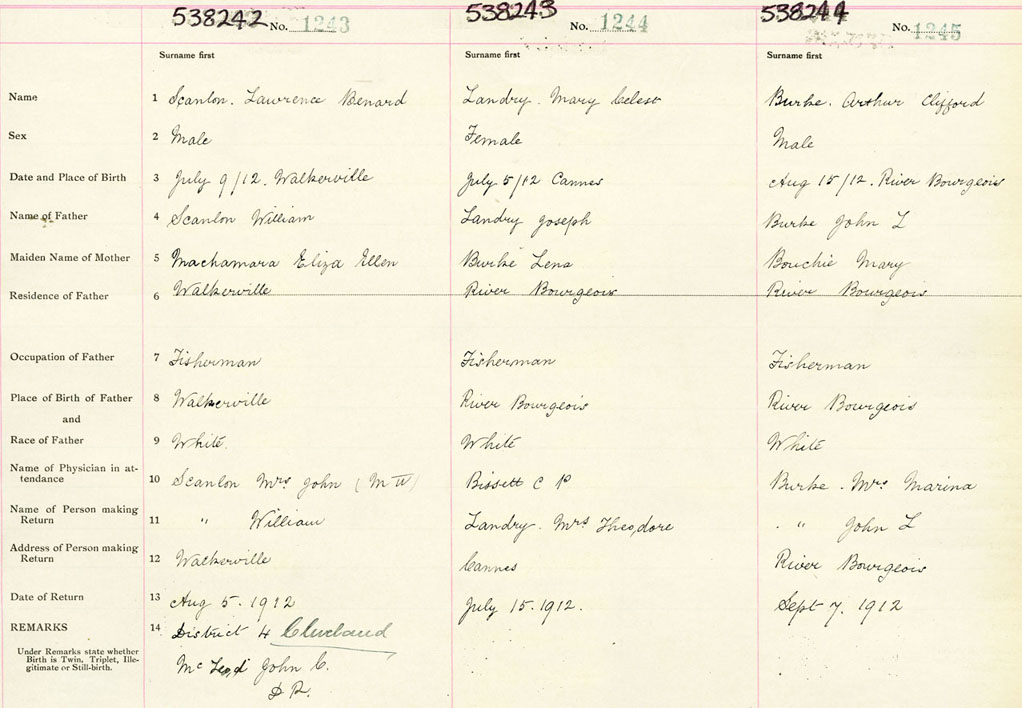 538242 No. 1243 538243 No. 1244 538244 No. 1245
Surname first Surname first Surname first
Name 1 Scanlon. Lawrence Benard Landry. Mary Celest Burke. Arthur Clifford
Sex 2 Male Female Male
Date and Place of Birth 3 July 9/12. Walkerville July 5/12 Cannes Aug 15/12. River Bourgeois
Name of Father 4 Scanlon William Landry Joseph Burke John L
Maiden Name of Mother 5 Macnamara Eliza Ellen Burke Lena Bouchie Mary
Residence of Father 6 Walkerville River Bourgeois River Bourgeois
Occupation of Father 7 Fisherman Fisherman Fisherman
Place of Birth of Father 8 Walkerville River Bourgeois River Bourgeois
and
Race of Father 9 White. White White
Name of Physician in at-
tendance 10 Scanlon Mrs John (M W) Bissett C P Burke. Mrs Marina
Name of Person making
Return 11 " William Landry. Mrs Theodore " John L
Address of Person making
Return 12 Walkerville Cannes River Bourgeois
Date of Return 13 Aug 5. 1912 July 15. 1912. Sept 7. 1912
REMARKS 14 District 4 Cleveland
Under Remarks state whether
Birth is Twin, Triplet, Ille-
gitimate or Still-birth.
McLeod John C.
D R.